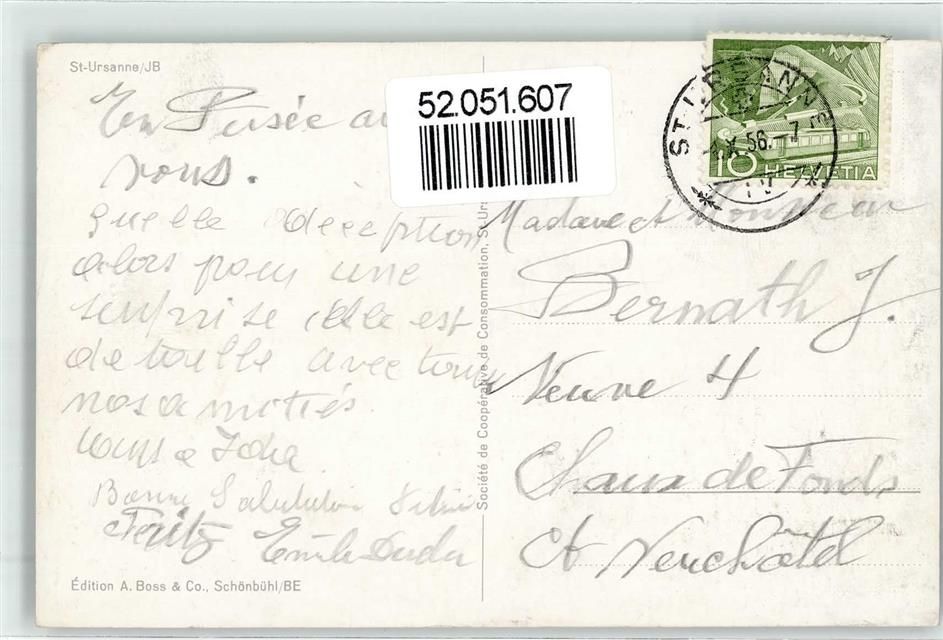 St-Ursanne/JB
En Pensée a
vous.
quelle déception
alors pour une
surprise elle est
de taille avec tous
nos amitiés
Bonne
Fritz Emile
Édition A. Boss & Co., Schönbühl/BE
Société de Coopérative de Consommation, St-Urs
52.051.607
ST-URSANNE
X. 56.-7
10 HELVETIA
Madame et Monsieur
Bernath J.
Neuve 4
Chaux de Fonds
Ct Neuchâtel